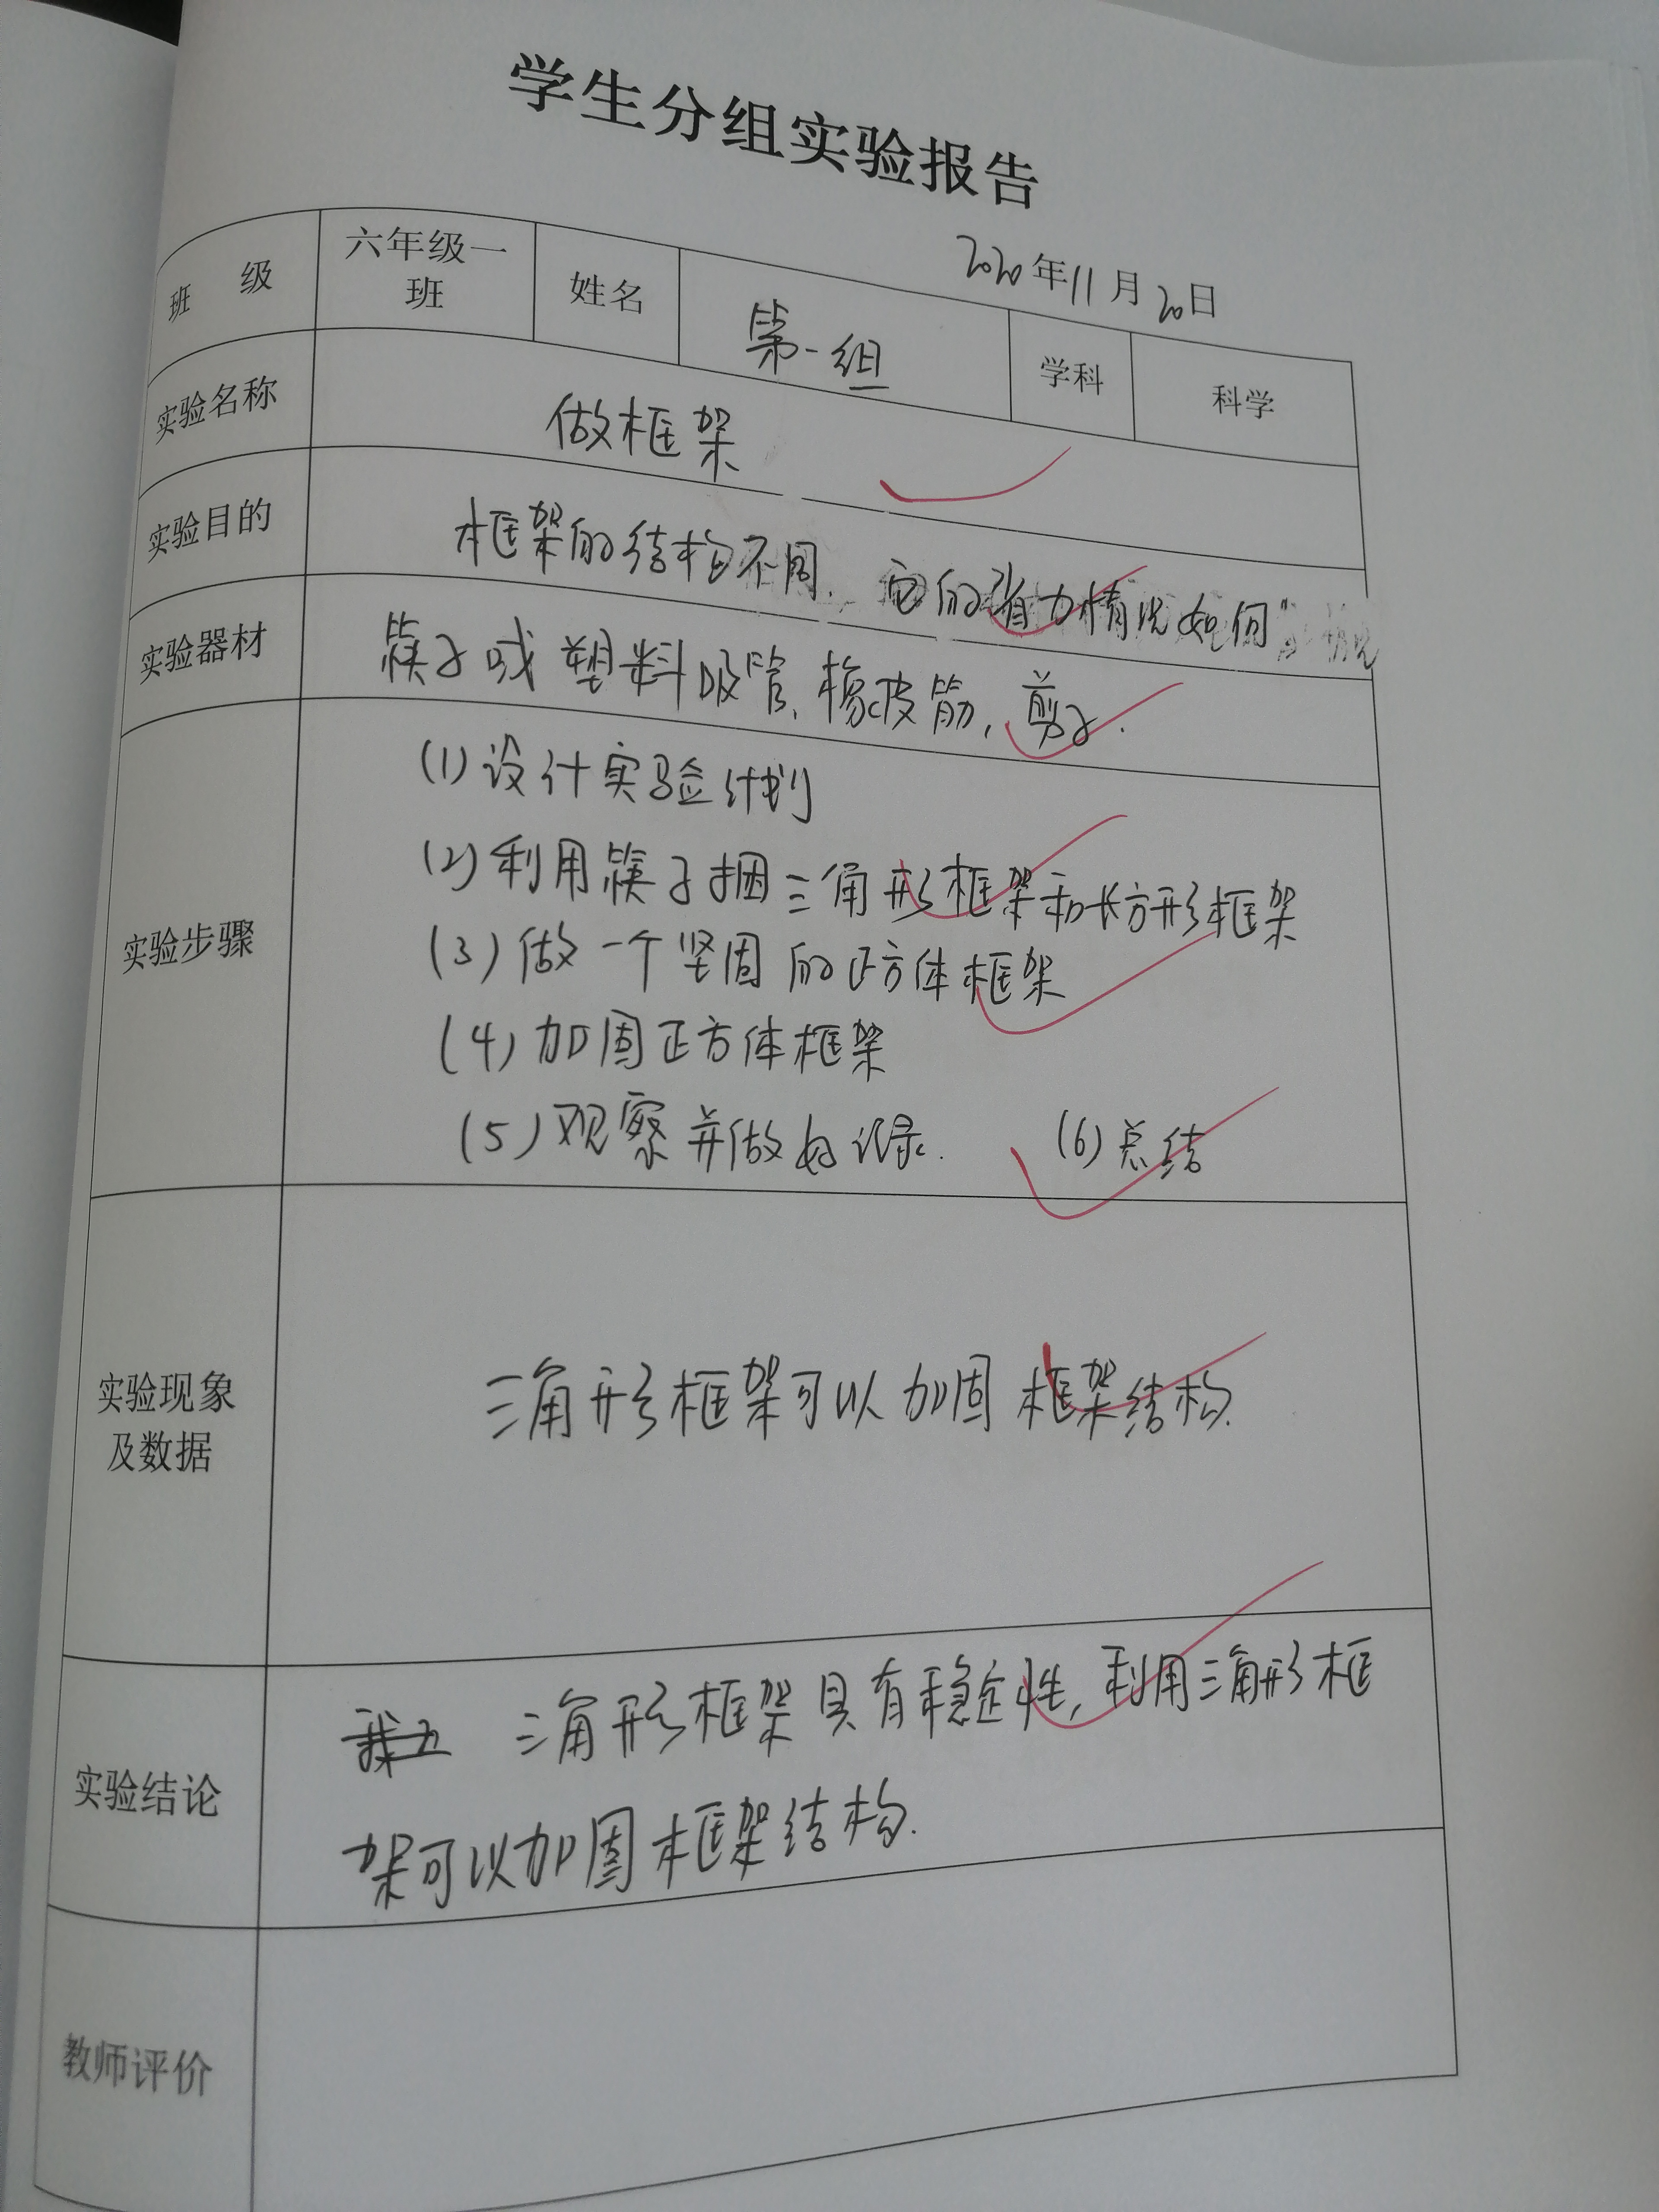 学生分组实验报告
2020年11月20日
班 级 六年级一班 姓名 第一组 学科 科学
实验名称 做框架
实验目的 框架的结构不同. 它的省力情况如何
实验器材 筷子或塑料吸管、橡皮筋,剪子.
实验步骤
(1)设计实验计划
(2)利用筷子捆三角形框架和长方形框架
(3)做一个坚固的正方体框架
(4)加固正方体框架
(5)观察并做好记录. (6)总结
实验现象及数据 三角形框架可以加固框架结构.
实验结论 三角形框架具有稳定性,利用三角形框
架可以加固框架结构.
教师评价